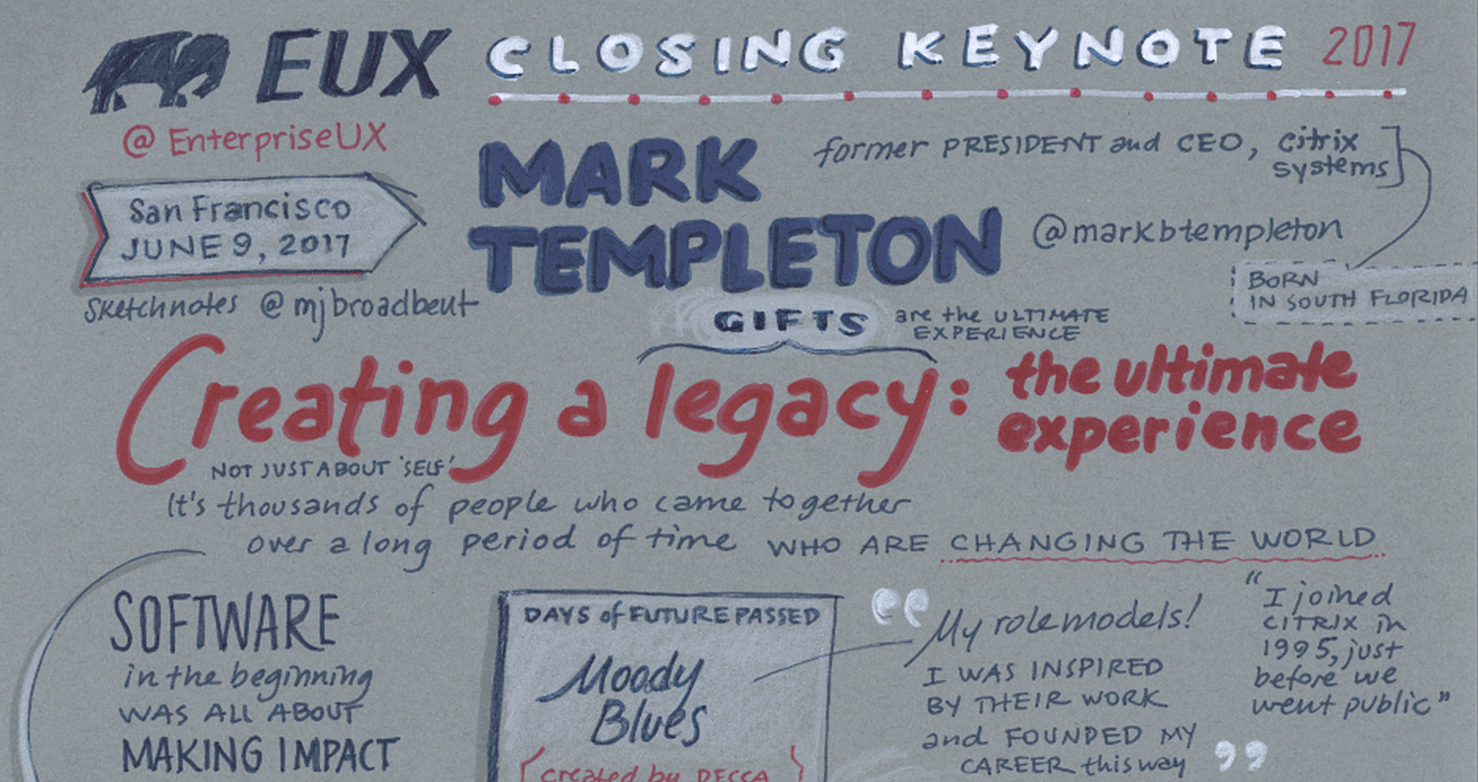 EUX CLOSING KEYNOTE 2017
@EnterpriseUX
San Francisco
JUNE 9, 2017
Sketchnotes @mjbroadbent
MARK
TEMPLETON
former PRESIDENT and CEO, citrix
systems
@markbtempleton
BORN
IN SOUTH FLORIDA
GIFTS are the ULTIMATE
EXPERIENCE
Creating a legacy: the ultimate
experience
NOT JUST ABOUT 'SELF'
It's thousands of people who came together
over a long period of time WHO ARE CHANGING THE WORLD
SOFTWARE
in the beginning
WAS ALL ABOUT
MAKING IMPACT
DAYS of FUTURE PASSED
Moody
Blues
(created by DECCA)
“My role models!
I WAS INSPIRED
BY THEIR WORK
and FOUNDED MY
CAREER this way”
“I joined
CITRIX in
1995, just
before we
went public”